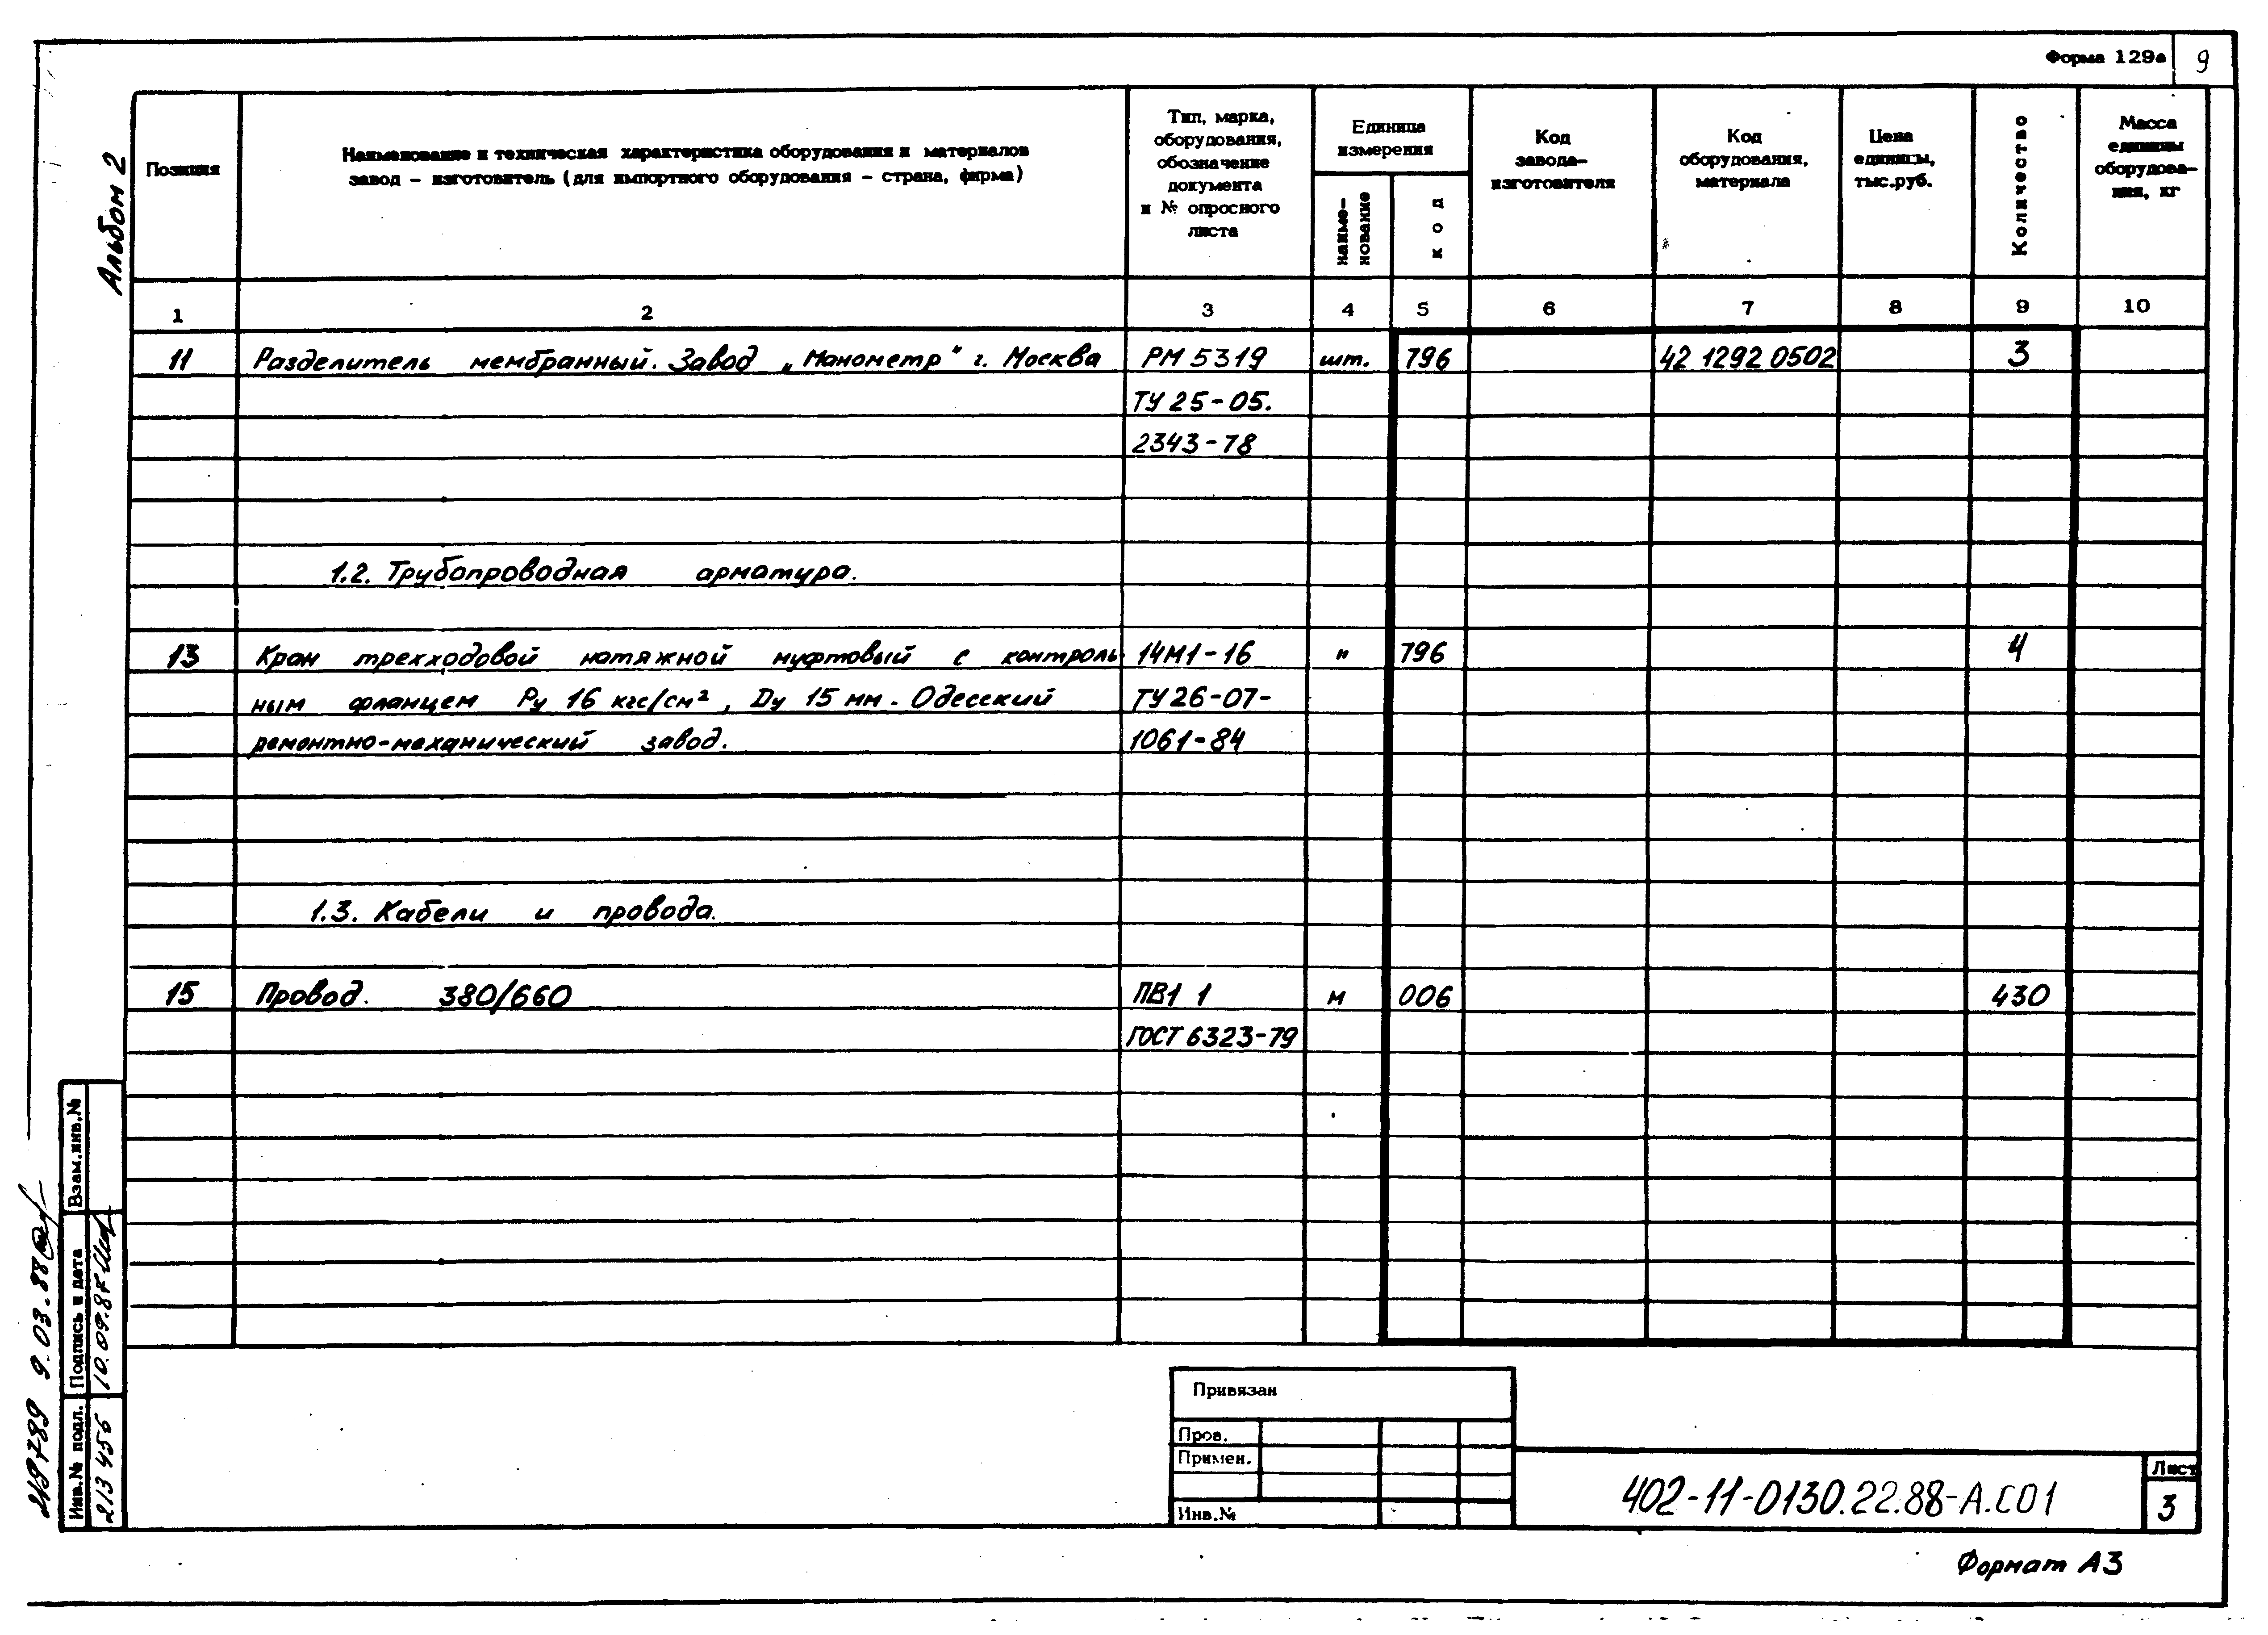 Форма 129а 9
Альбом 2
Позиция
Наименование и техническая характеристика оборудования и материалов
завод – изготовитель (для импортного оборудования – страна, фирма)
Тип, марка,
оборудования,
обозначение
документа
и № опросного
листа
Единица
измерения
наиме–
нование
код
Код
завода–
изготовителя
Код
оборудования,
материала
Цена
единицы,
тыс.руб.
Количество
Масса
единицы
оборудова–
ния, кг
1 2 3 4 5 6 7 8 9 10
11 Разделитель мембранный. Завод „Манометр" г. Москва РМ 5319 шт. 796 42 1292 0502 3
ТУ 25-05.
2343-78
1.2. Трубопроводная арматура.
13 Кран трехходовой натяжной муфтовый с контроль 14М1-16 " 796 4
ным фланцем Ру 16 кгс/см², Ду 15 мм. Одесский ТУ 26-07-
ремонтно-механический завод. 1061-84
1.3. Кабели и провода.
15 Провод. 380/660 ПВ1 1 м 006 430
ГОСТ 6323-79
Взам.инв.№
Подпись и дата
Инв.№ подл.
213456
9.03.88
Привязан
Пров.
Примен.
Инв.№
402-11-0130.22.88-А.СО1
Лист
3
Формат А3